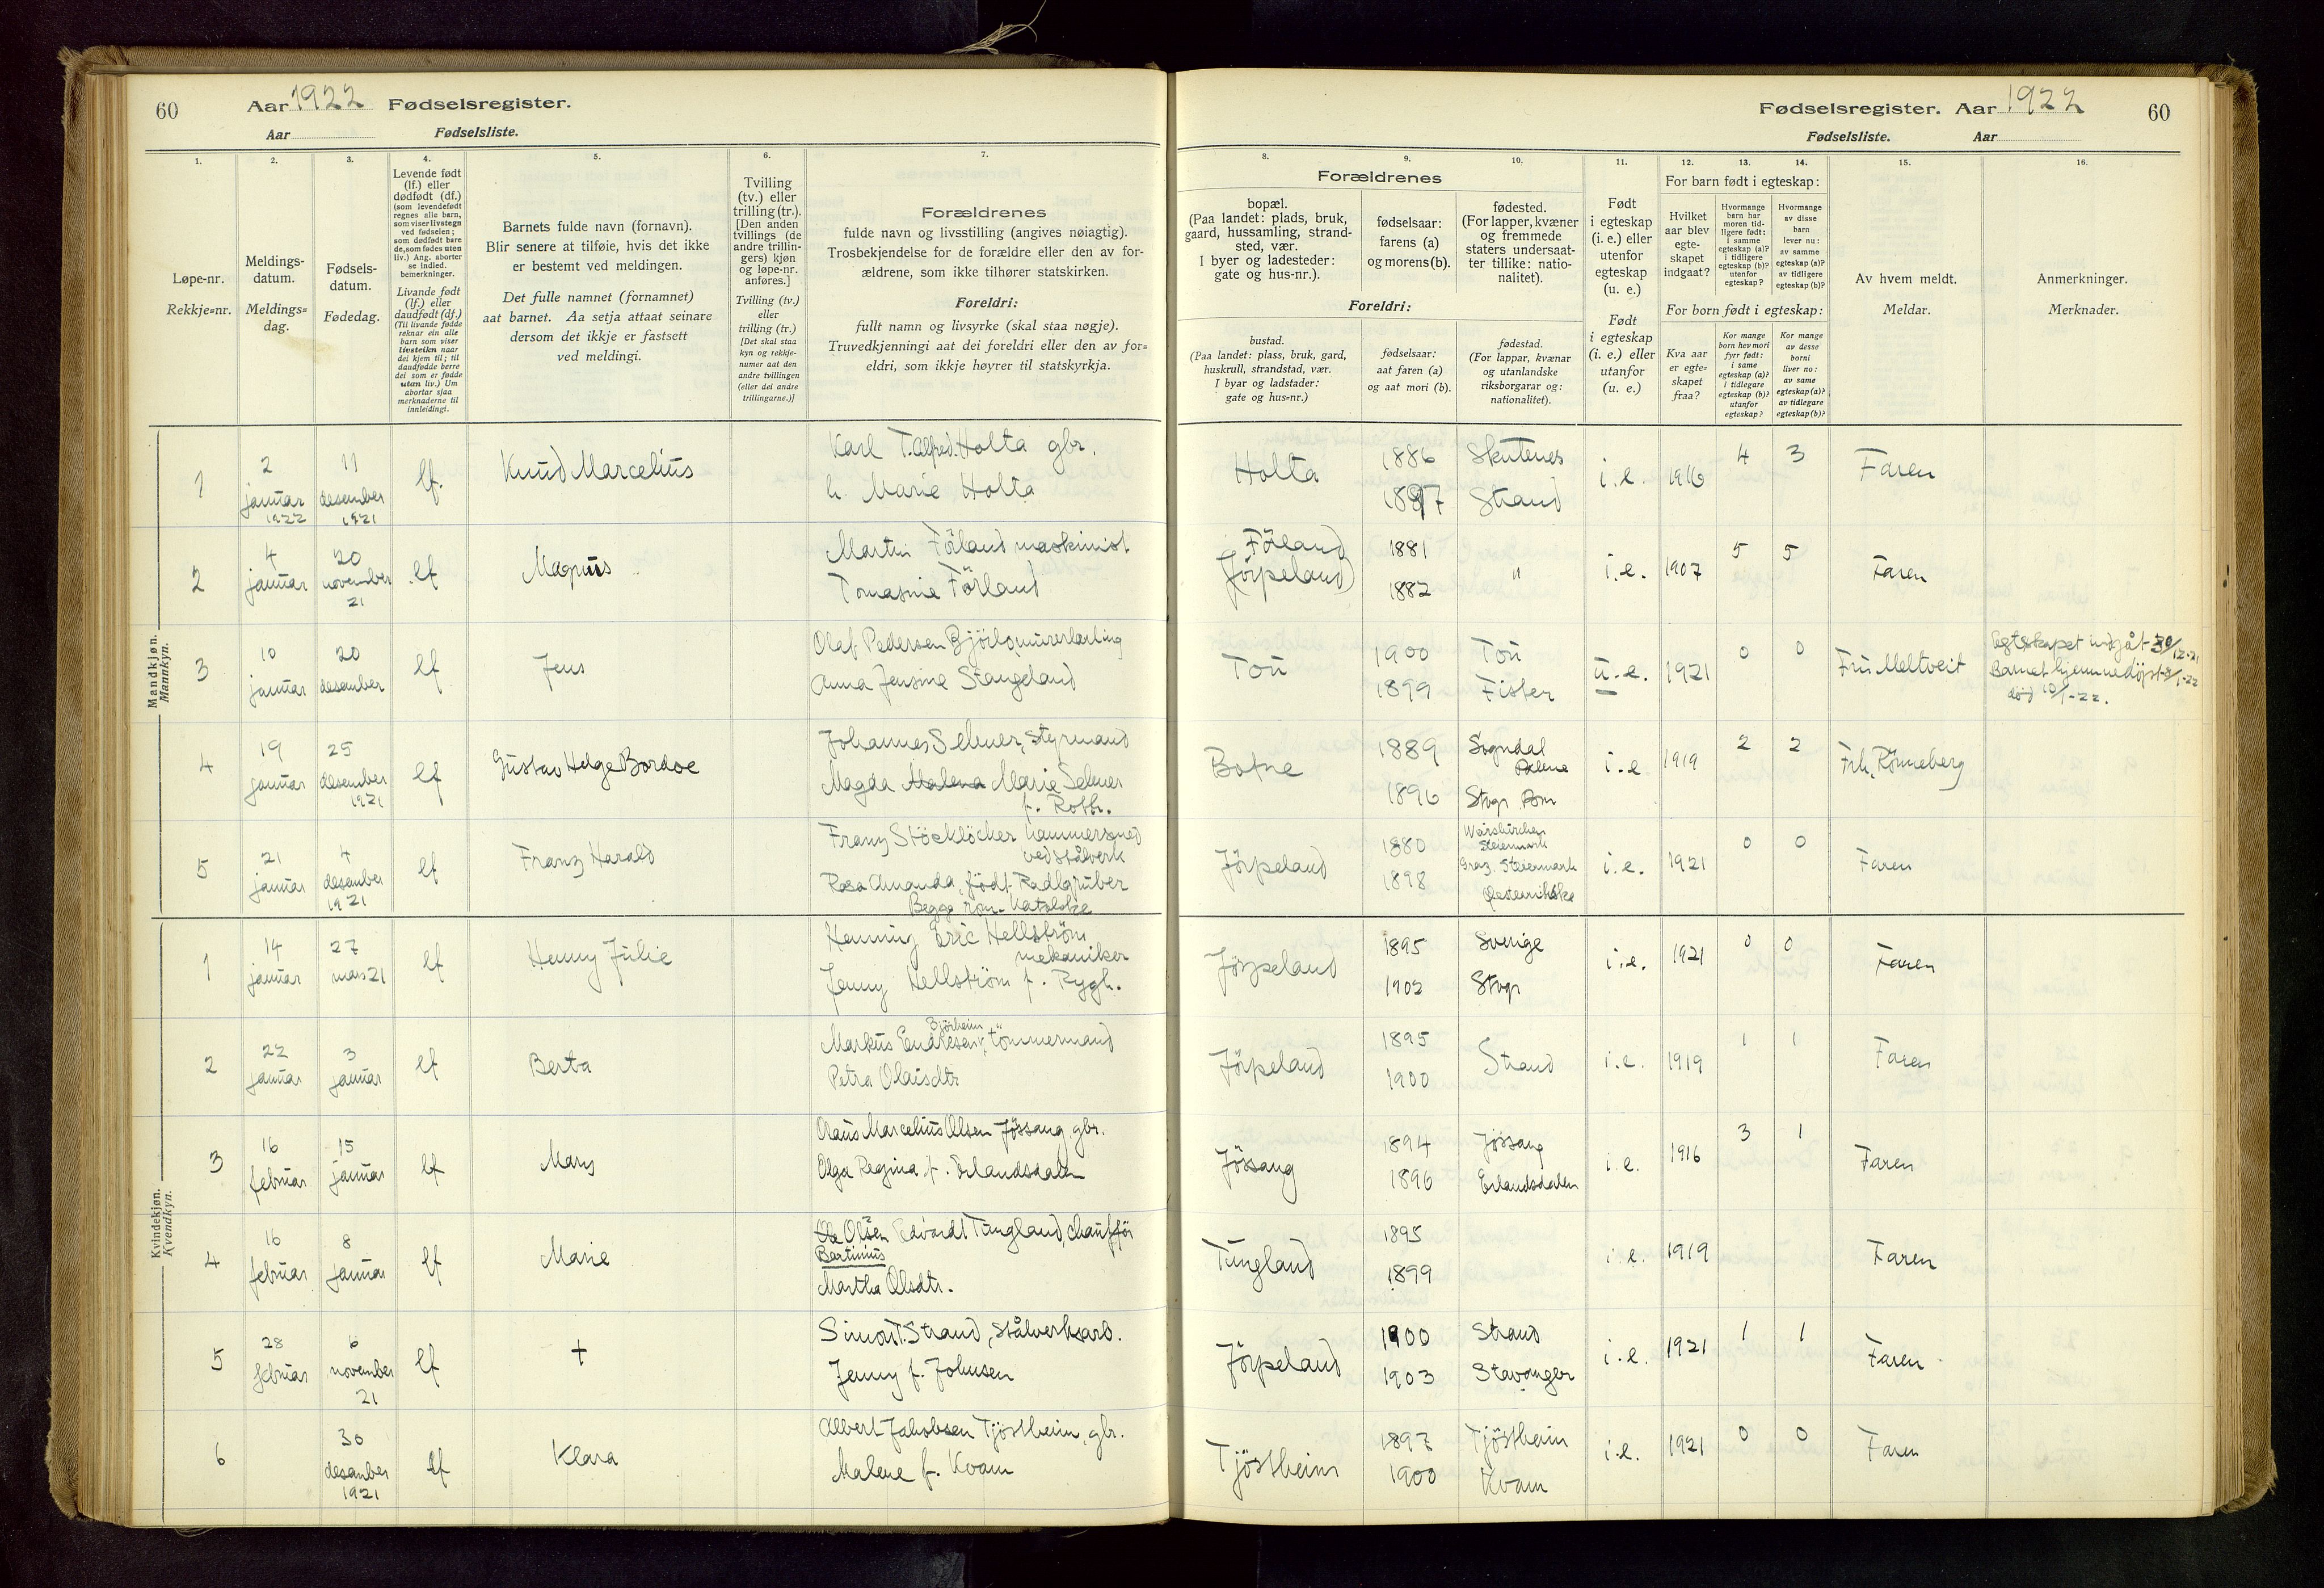 60
Aar 1922 Fødselsregister.
Aar Fødselsliste.
1.
2.
3.
4.
5.
6.
7.
Løpe-nr.
Rekkje=nr.
Meldings-
datum.
Meldings=
dag.
Fødsels-
datum.
Fødedag.
Levende født
(lf.) eller
dødfødt (df.)
(som levendefødt
regnes alle barn,
som viser livstegn
ved fødselen;
som dødfødt bare
de, som fødes uten
liv.) Ang. aborter
se indled.
bemerkninger.
Livande født
(lf.) eller
daudfødt (df.)
(Til livande fødde
reknar ein alle
barn som viser
livsteikn naar
dei kjem til; til
daudfødde berre
dei som er fødde
utan liv.) Um
abortar sjaa
merknaderne til
innleidingi.
Barnets fulde navn (fornavn).
Blir senere at tilføie, hvis det ikke
er bestemt ved meldingen.
Det fulle namnet (fornamnet)
aat barnet. Aa setja attaat seinare
dersom det ikkje er fastsett
ved meldingi.
Tvilling
(tv.) eller
trilling (tr.).
[Den anden
tvillings (de
andre trillin-
gers) kjøn
og løpe-nr.
anføres.]
Tvilling (tv.)
eller
trilling (tr.)
[Det skal staa
kyn og rekkje-
numer aat den
andre tvillingen
(eller dei andre
trillingarne.)]
Forældrenes
fulde navn og livsstilling (angives nøiagtig).
Trosbekjendelse for de forældre eller den av for-
ældrene, som ikke tilhører statskirken.
Foreldri:
fullt namn og livsyrke (skal staa nøgje).
Truvedkjenningi aat dei foreldri eller den av for=
eldri, som ikkje høyrer til statskyrkja.
Mandkjøn.
Mannkyn.
1
2
januar
1922
11
desember
1921
lf.
Knud Marcelius
Karl T. Alfred. Holta gbr.
h. Marie Holta
2
4
januar
20
november
21
lf
Magnus
Martin Förland maskinist
Tomasine Förland
3
10
januar
20
desember
lf
Jens
Olaf Pedersen
Anna Jensine Stangeland
4
19
januar
25
desember
1921
lf
Gustav Helge Bordoe
Johannes Selmer, Styrmand
Magda Malena Marie Selmer
f. Roth.
5
21
januar
4
desember
1921
lf
Franz Harald
Franz Stöcklöcker hammersmed
ved stålverk
Rosa Amanda, födt Radlgruber
Begge rom. katolske
Kvindekjøn.
Kvendkyn.
1
14
januar
27
mars 21
lf
Henny Julie
Henning Eric Hellström
mekaniker
Jenny Hellström f. Rygh.
2
22
januar
3
januar
lf
Berta
Björheim
Markus Endresen, tömmermand
Petra Olaisdtr
3
16
februar
15
januar
lf
Mary
Olaus Marcelius Olsen Jössang, gbr.
Olga Regina f. Erlandsdalen
4
16
februar
8
januar
lf
Marie
Ole Olsen Edvardt Tungland, chaufför
Bertinius
Martha Olsdtr.
5
28
februar
6
november
21
lf
+
Simon T. Strand, Stålverksarb.
Jenny f. Johnsen
6
30
desember
1921
lf
Klara
Albert Jakobsen Tjöstheim, gbr.
Malene f. Kvam
Fødselsregister. Aar 1922
60
Fødselsliste. Aar
8.
9.
10.
11.
12.
13.
14.
15.
16.
Forældrenes
bopæl.
(Paa landet: plads, bruk,
gaard, hussamling, strand-
sted, vær.
I byer og ladesteder:
gate og hus-nr.).
fødselsaar:
farens (a)
og morens (b).
fødested.
(For lapper, kvæner
og fremmede
staters undersaat-
ter tillike: natio-
nalitet).
Foreldri:
bustad.
(Paa landet: plass, bruk, gard,
huskrull, strandstad, vær.
I byar og ladstader:
gate og hus=nr.)
fødselsaar:
aat faren (a)
og aat mori (b).
fødestad.
(For lappar, kvænar
og utanlandske
riksborgarar og:
nationalitet).
Født
i egteskap
(i. e.) eller
utenfor
egteskap
(u. e.)
Født
i egteskap
(i. e.) eller
utanfor
(u. e.)
For barn født i egteskap:
Hvilket
aar blev
egte-
skapet
indgaat?
Hvormange
barn har
moren tid-
ligere født:
i samme
egteskap (a)?
i tidligere
egteskap (b)?
utenfor
egteskap?
Hvormange
av disse
barn
lever nu:
av samme
egteskap (a)?
av tidligere
egteskap (b)?
For born født i egteskap:
Kva aar
er egte=
skapet
fraa?
Kor mange
born hev mori
fyrr født:
i same
egteskap (a)?
i tidlegare
egteskap (b)?
utanfor
egteskap?
Kor mange
av desse
borni
liver no:
av same
egteskap (a)?
av tidlegare
egteskap (b)?
Av hvem meldt.
Meldar.
Anmerkninger.
Merknader.
Holta
1886
1897
Skutenes
Strand
i.e.
1916
4
3
Faren
Förland
(Jörpeland)
1881
1882
"
i.e.
1907
5
5
Faren
Tou
1900
1899
Tou
Fister
u.e.
1921
0
0
Fru Meltveit
Egteskapet indgåt 30/12-21
Barnet hjemmedöpt
död 10/1-22.
Botne
1889
1896
Sogndal
Stvgr
i.e
1919
2
2
Frk. Rönneberg
Jörpeland
1880
1898
Steiermark
Graz, Steiermark
i.e.
1921
0
0
Faren
Jörpeland
1895
1902
Sverige
Stvgr
i.e.
1921
0
0
Faren
Jörpeland
1895
1900
Strand
i.e.
1919
1
1
Faren
Jössang
1894
1896
Jössang
Erlandsdalen
i.e.
1916
3
1
Faren
Tungland
1895
1899
i.e.
1919
Faren
Jörpeland
1900
1903
Strand
Stavanger
i.e.
1921
1
1
Faren
Tjöstheim
1897
1900
Tjöstheim
Kvam
i.e.
1921
0
0
Faren